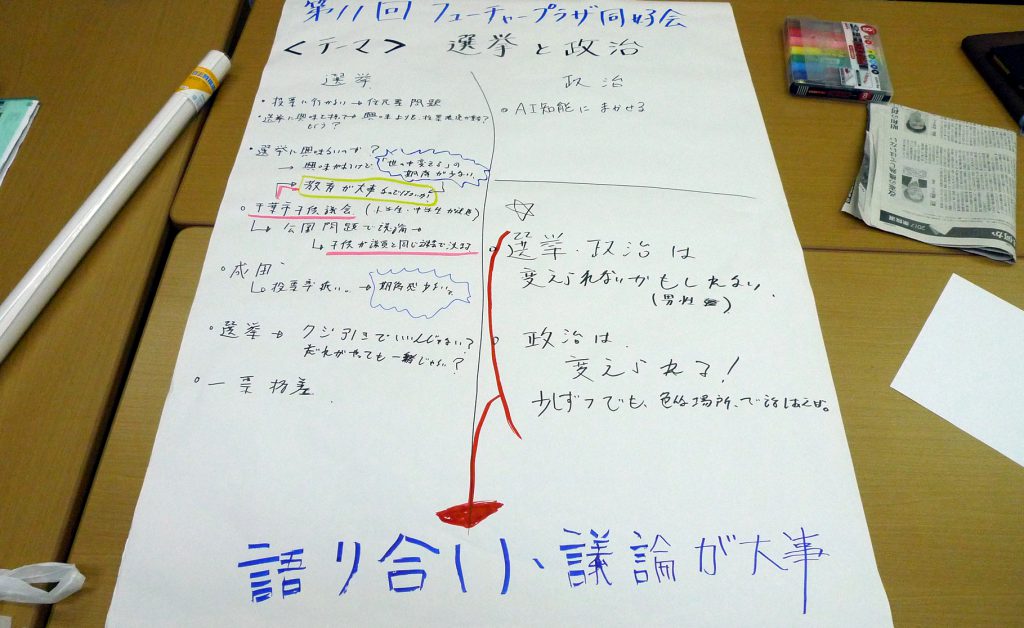 第11回 フューチャープラザ同好会
<テーマ> 選挙と政治
選挙
・投票に行かない→住民票問題
・選挙に興味を持って→興味
もらう?
・選挙に興味ないのず?
→興味がわけで「世の中変える」の
期待が少ない。
教育が大事なのではないか!
○千葉市子供議会(小学生・中学生が
↳公園問題で議論→
↳子供が議員と同じ
○成田
↳投票率低い。→期待感少ない
○選挙→クジ引きでいいんじゃない?
だれがやっても一緒じゃない?
○一票格差
政治
○AI知能にまかせる
☆
○選挙・政治は
変えられないかもしれない。
(男性
○政治は
変えられる!
少しずつでも、色んな場所、で話しあえば。
語り合い、議論が大事